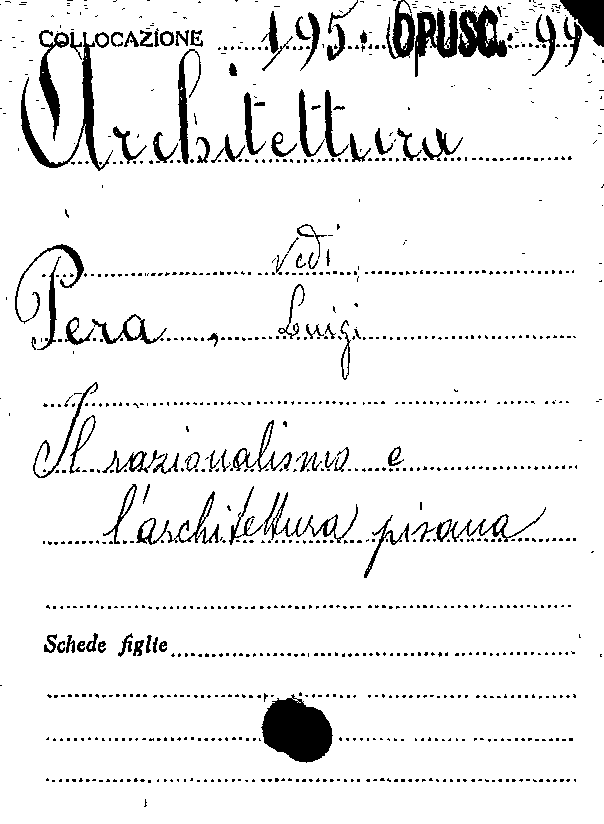 COLLOCAZIONE 195. OPUSC. 99
Architettura
Vedi
Pera, Luigi
Il razionalismo e
l'architettura pisana
Schede figlie